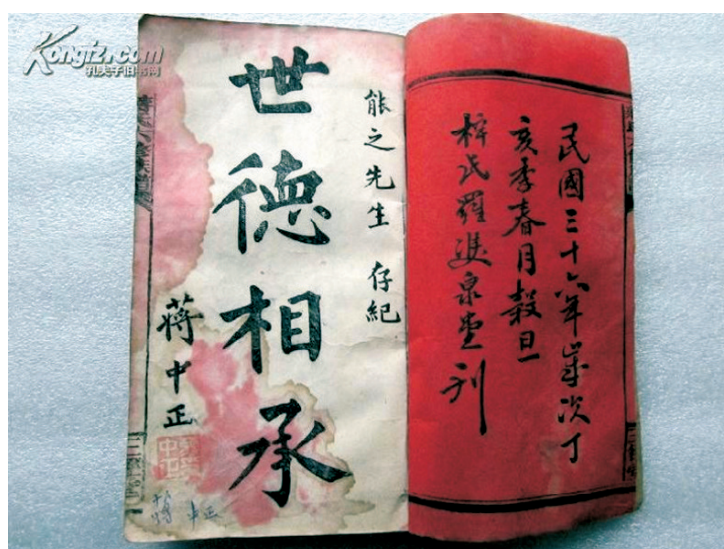 Kongfz.com
孔夫子旧书网
民國三十六年歲次丁
亥季春月穀旦
梓民羅進泉堂刊
能之先生 存紀
世德相承
蔣中正